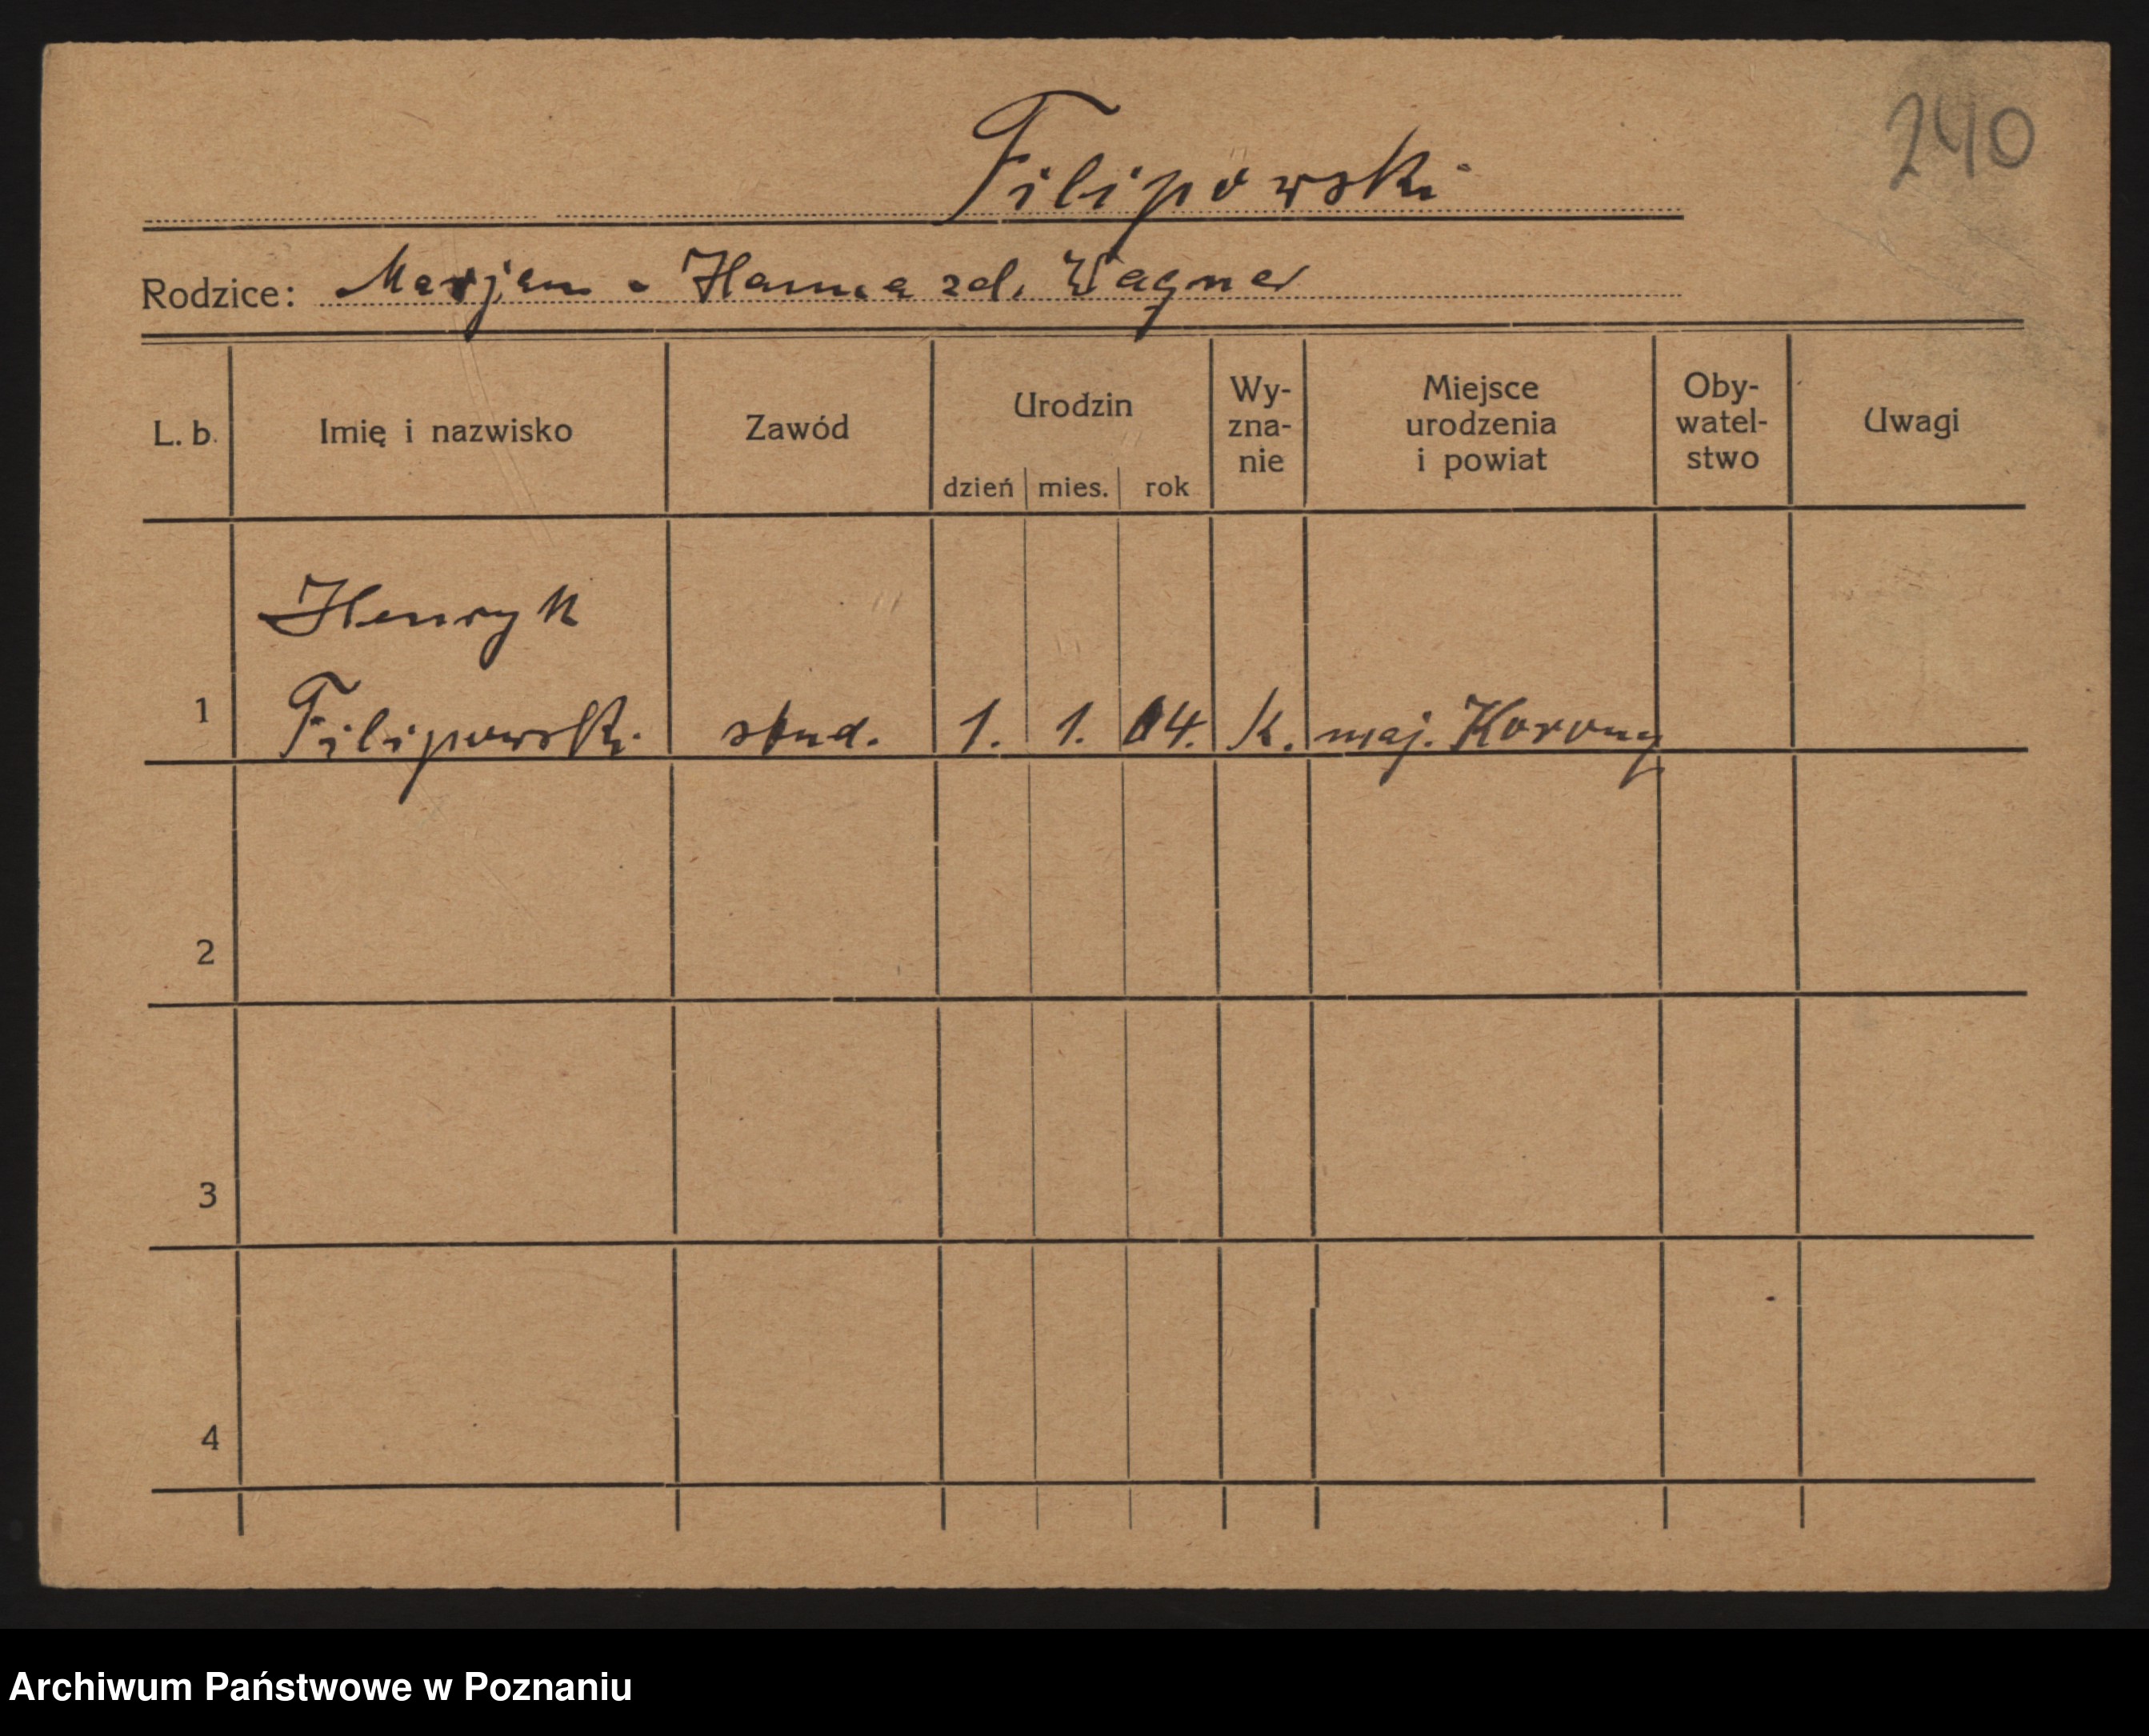 240
Filipowski
Rodzice: Marjan - Hanna zd. Wagner
L. b. Imię i nazwisko Zawód Urodzin dzień mies. rok Wy-zna-nie Miejsce urodzenia i powiat Oby-watel-stwo Uwagi
Henryk
1 Filipowski stud. 1. 1. 04. k. maj. Korony
2
3
4
Archiwum Państwowe w Poznaniu